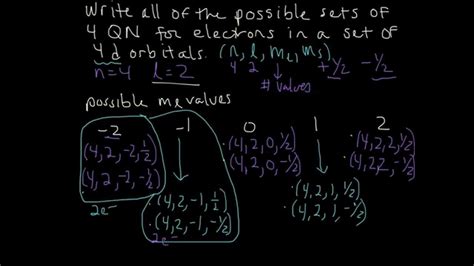 Write all of the possible sets of
4 QN for electrons in a set of
4d orbitals. (n, l, ml, ms)
n=4 l=2 4 2 ↓ +1/2 -1/2
# values
possible ml values
-2 -1 0 1 2
(4,2,-2,1/2) ↓ ·(4,2,0,1/2) ↓ ·(4,2,2,1/2)
(4,2,-2,-1/2) ·(4,2,0,-1/2) ·(4,2,2,-1/2)
2e- ·(4,2,-1,1/2) ·(4,2,1,1/2)
·(4,2,-1,-1/2) ·(4,2,1,-1/2)
2e-